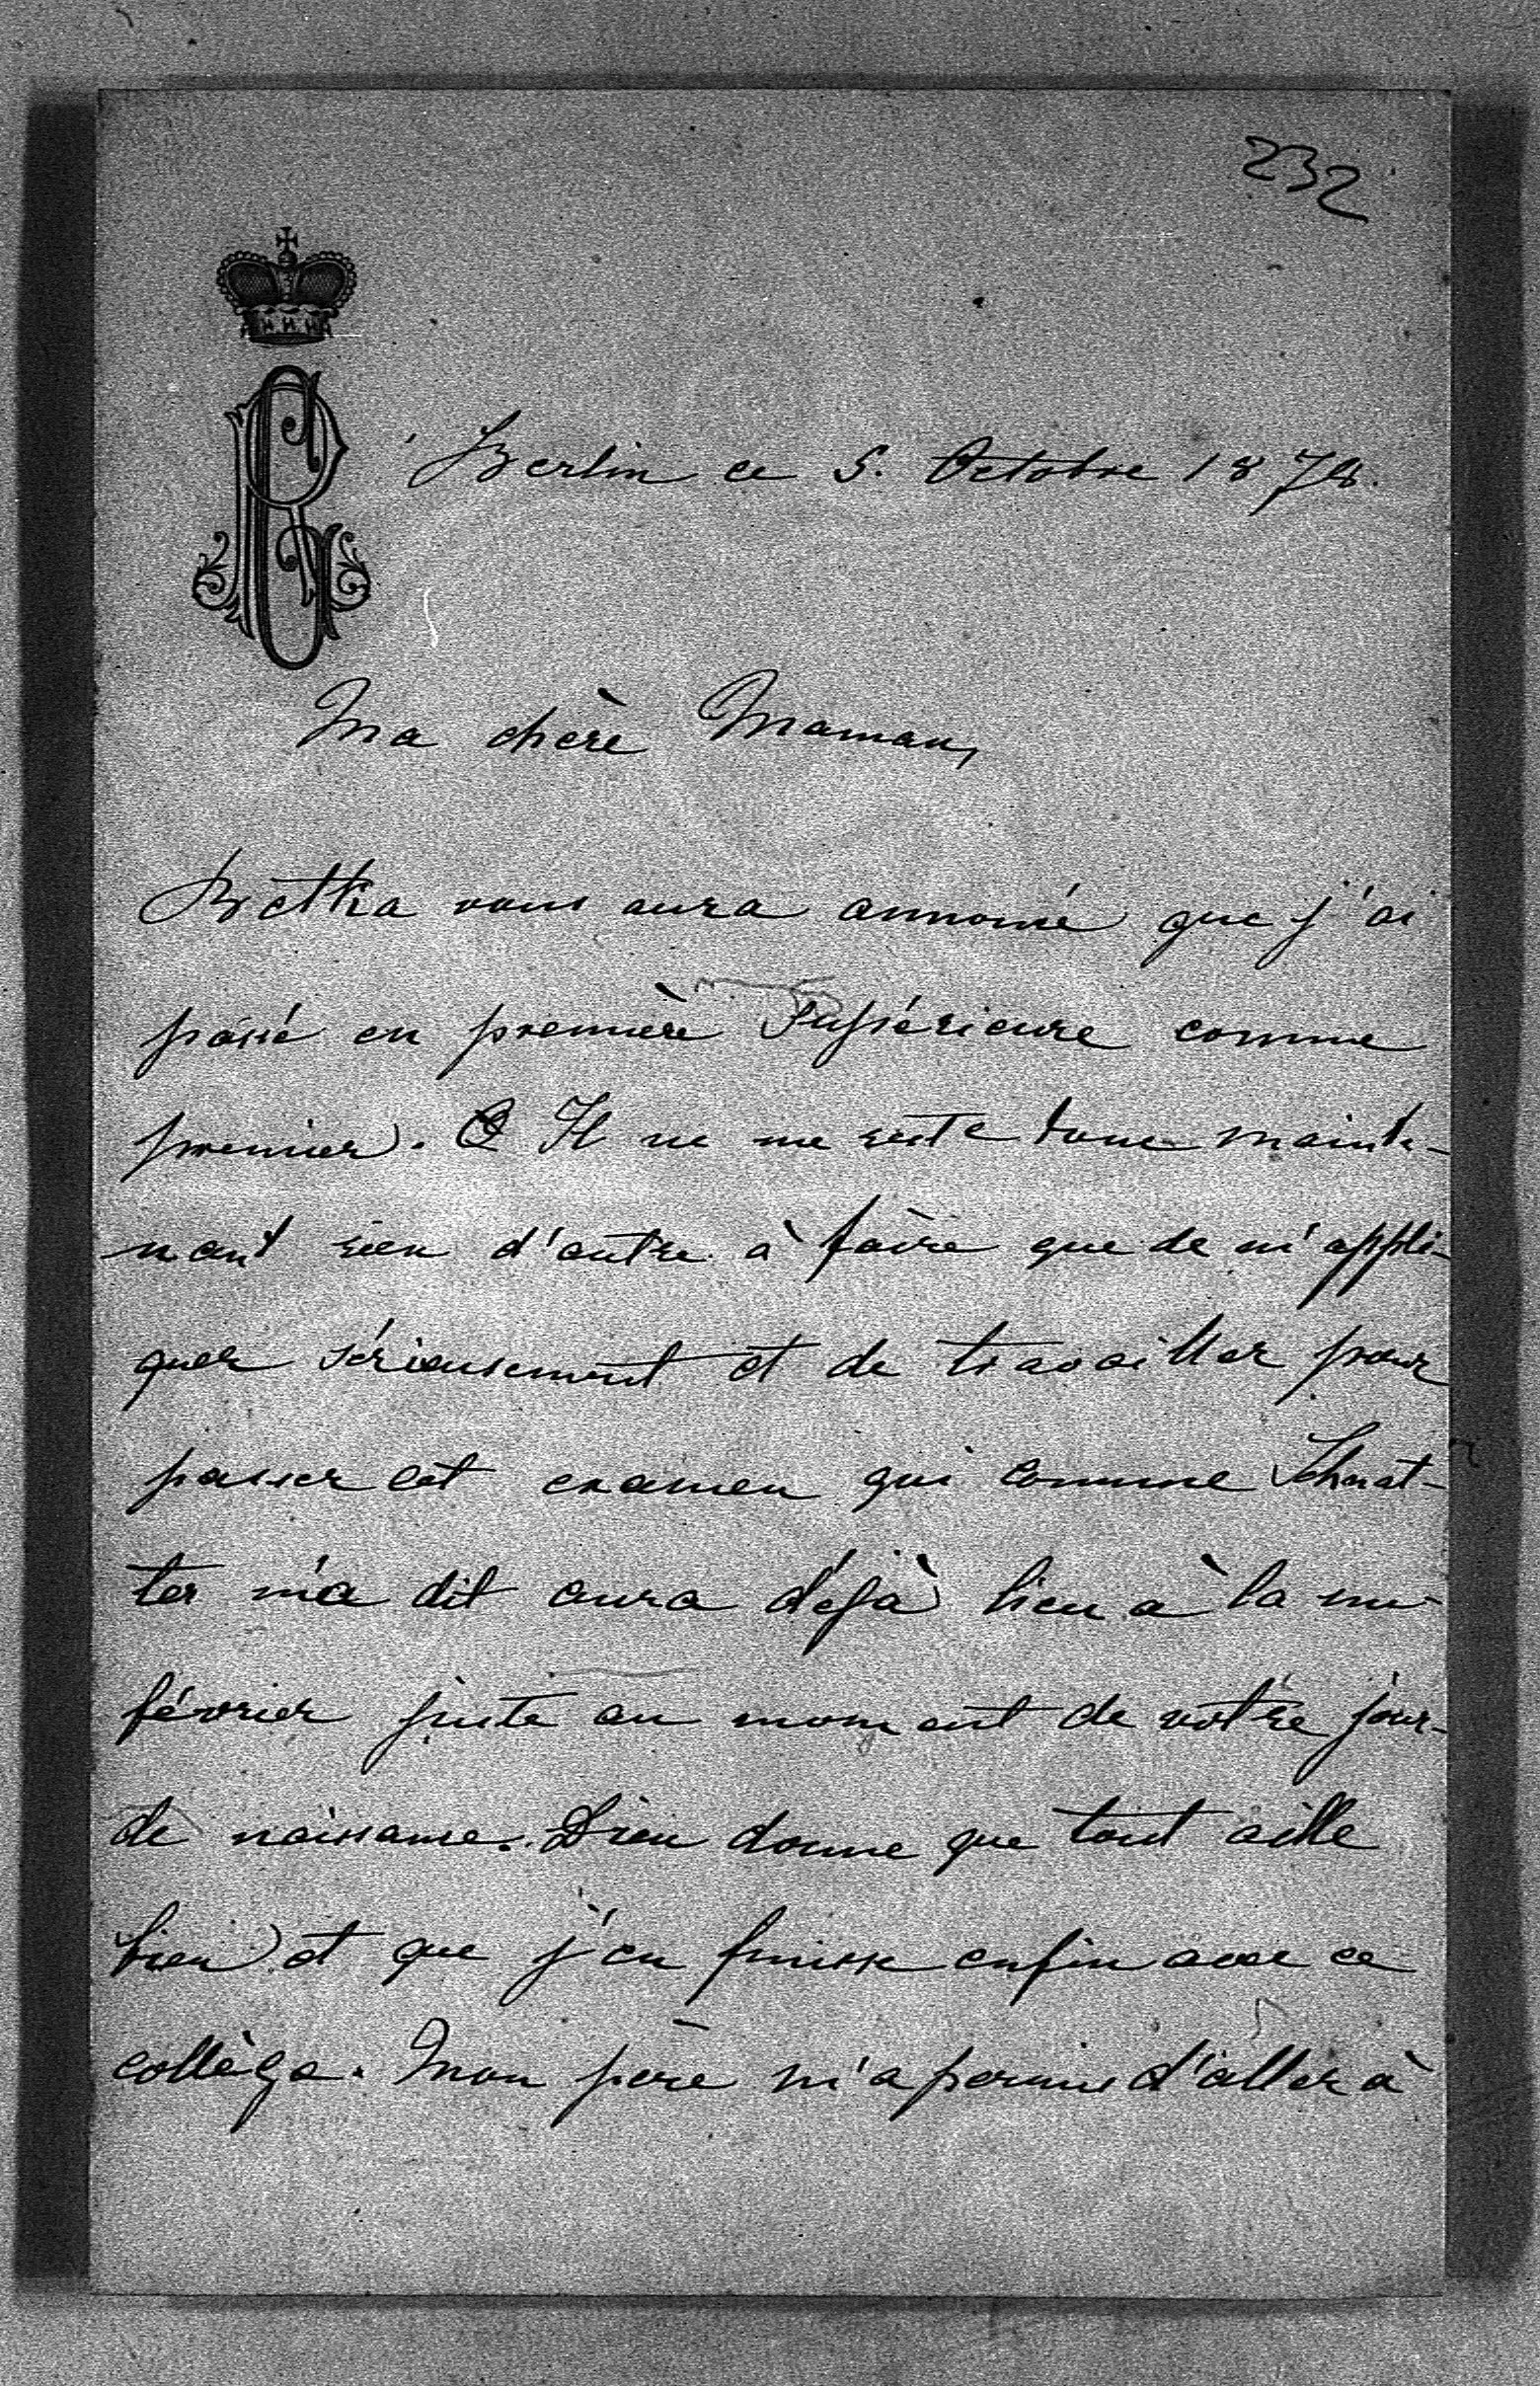 232
Berlin ce 5. Octobre 1878.
Ma chère Maman,
Betka vous aura annoncé que j'ai
passé en première Supérieure comme
premier. Il ne me reste donc mainte-
nant rien d'autre à faire que de m'appli-
quer sérieusement et de travailler pour
passer cet examen qui comme Schnat-
ter m'a dit aura déjà lieu à la mi-
février juste au moment de votre jour-
de naissance. Dieu donne que tout aille
bien et que j'en finisse enfin avec ce
collège. Mon père m'a permis d'aller à